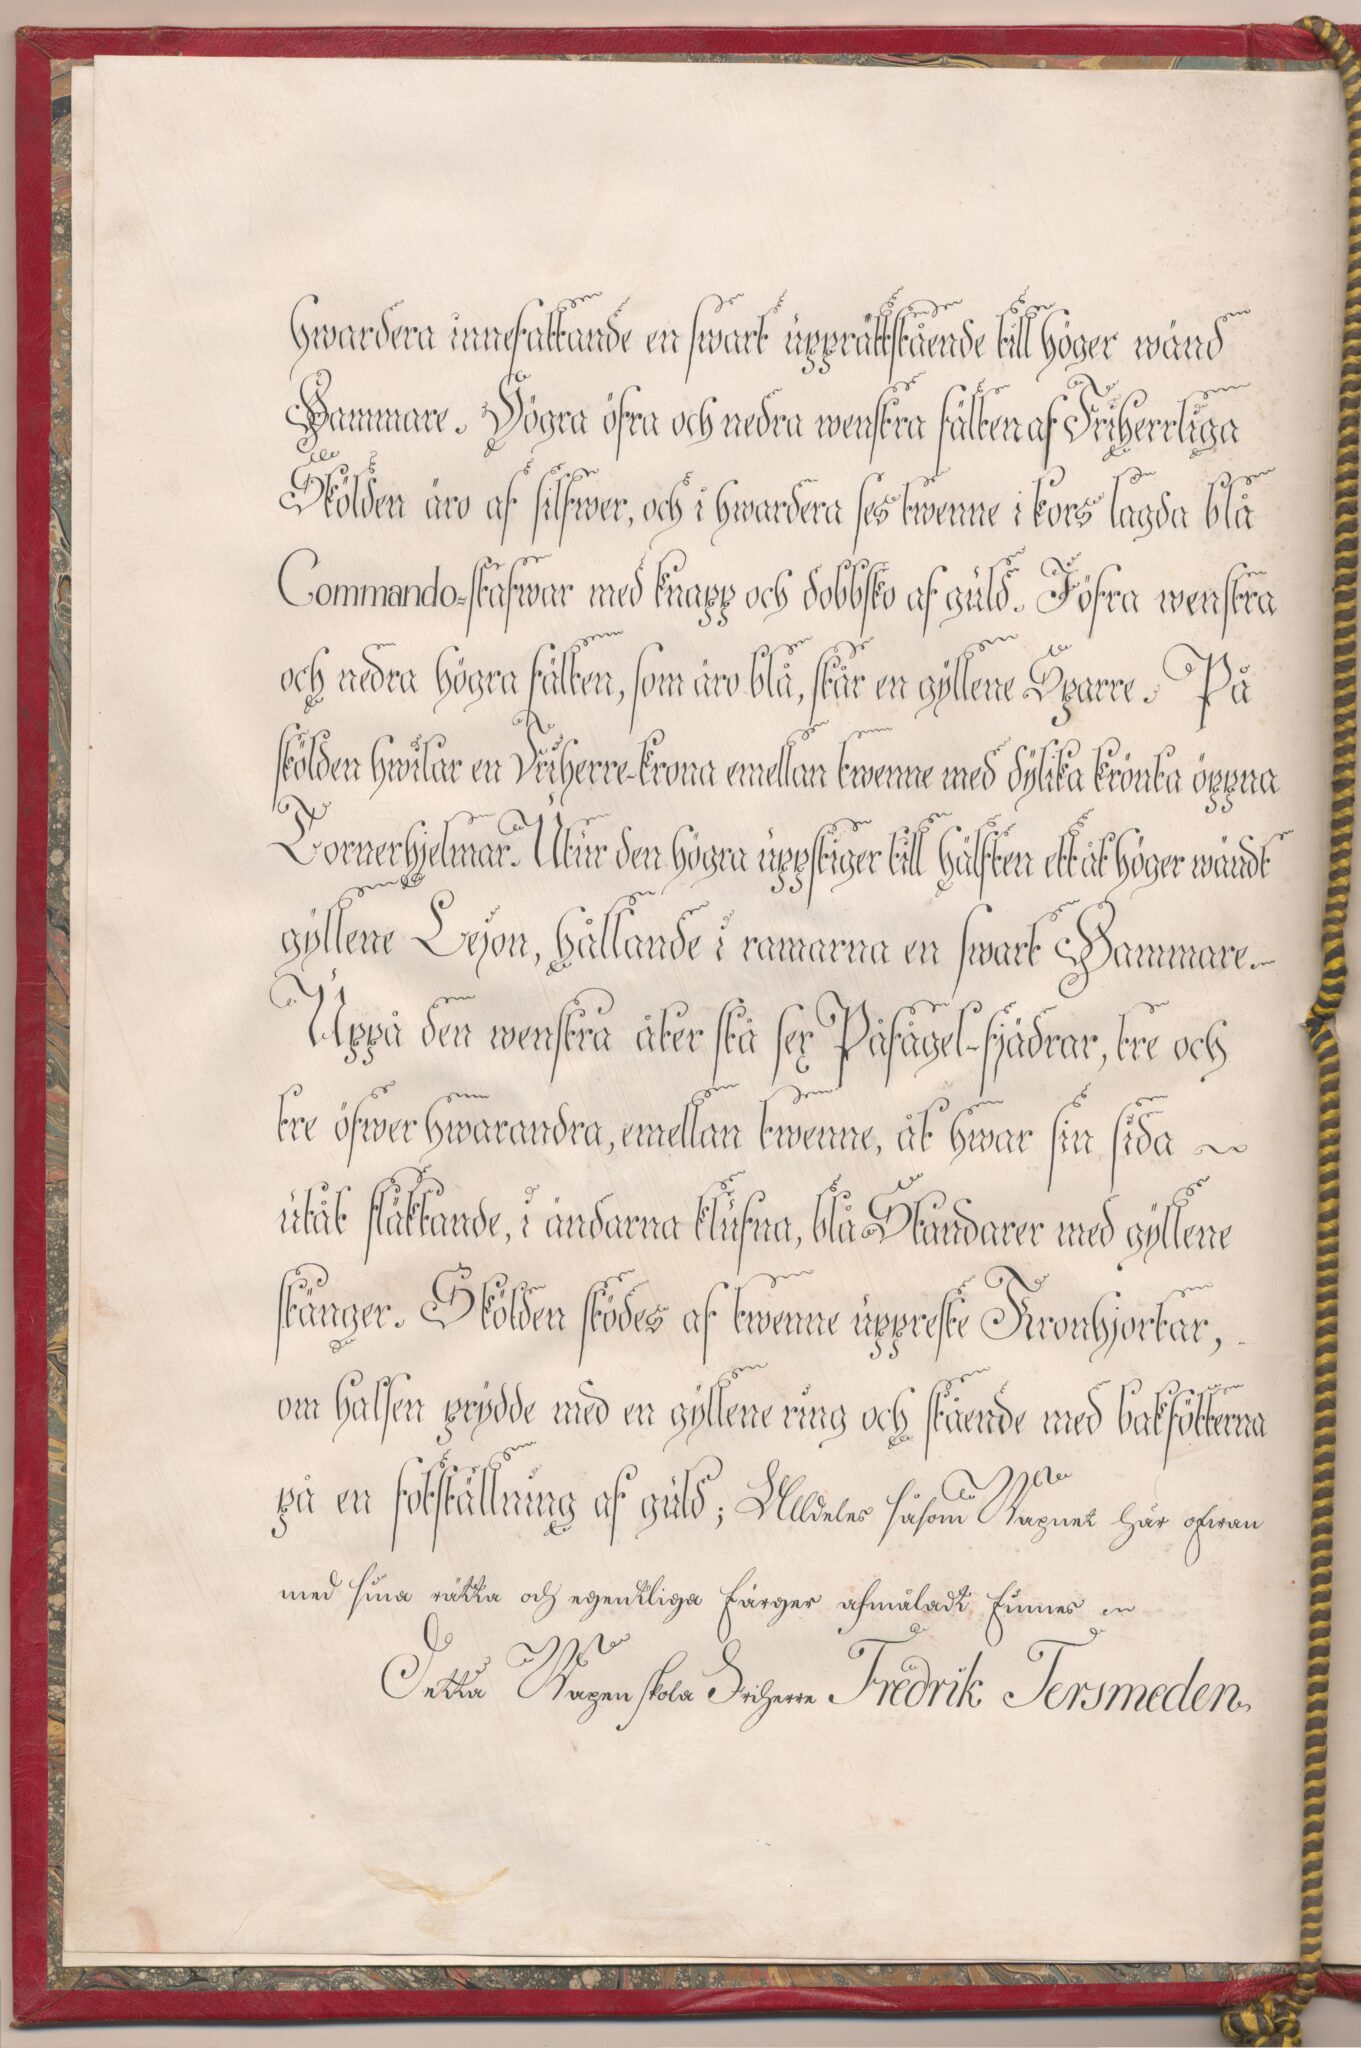 hwardera innefattande en swart upprättstående till höger wänd
Hammare. Högra öfra och nedra wenstra fälten af Friherrliga
Skölden äro af silfwer, och i hwardera ses twenne i kors lagda blå
Commando-stafwar med knapp och dobbsko af guld. I öfra wenstra
och nedra högra fälten, som äro blå, står en gyllene Sparre. På
skölden hwilar en Friherre-krona emellan twenne med dylika krönta öppna
Tornerhjelmar. Utur den högra uppstiger till hälften ett åt höger wändt
gyllene Lejon, hållande i ramarna en swart Hammare.
Uppå den wenstra åter stå sex Påfågel-fjädrar, tre och
tre öfwer hwarandra, emellan twenne, åt hwar sin sida
utåt fläktande, i ändarna klufna, blå Standarer med gyllene
stänger. Skölden stödes af twenne uppreste Kronhjortar,
om halsen prydde med en gyllene ring och stående med bakfötterna
på en fotställning af guld; Alldeles såsom Wapnet här ofwan
med sina rätta och egentliga färger afmåladt finnes
Detta Wapen skola Friherre Fredrik Tersmeden,